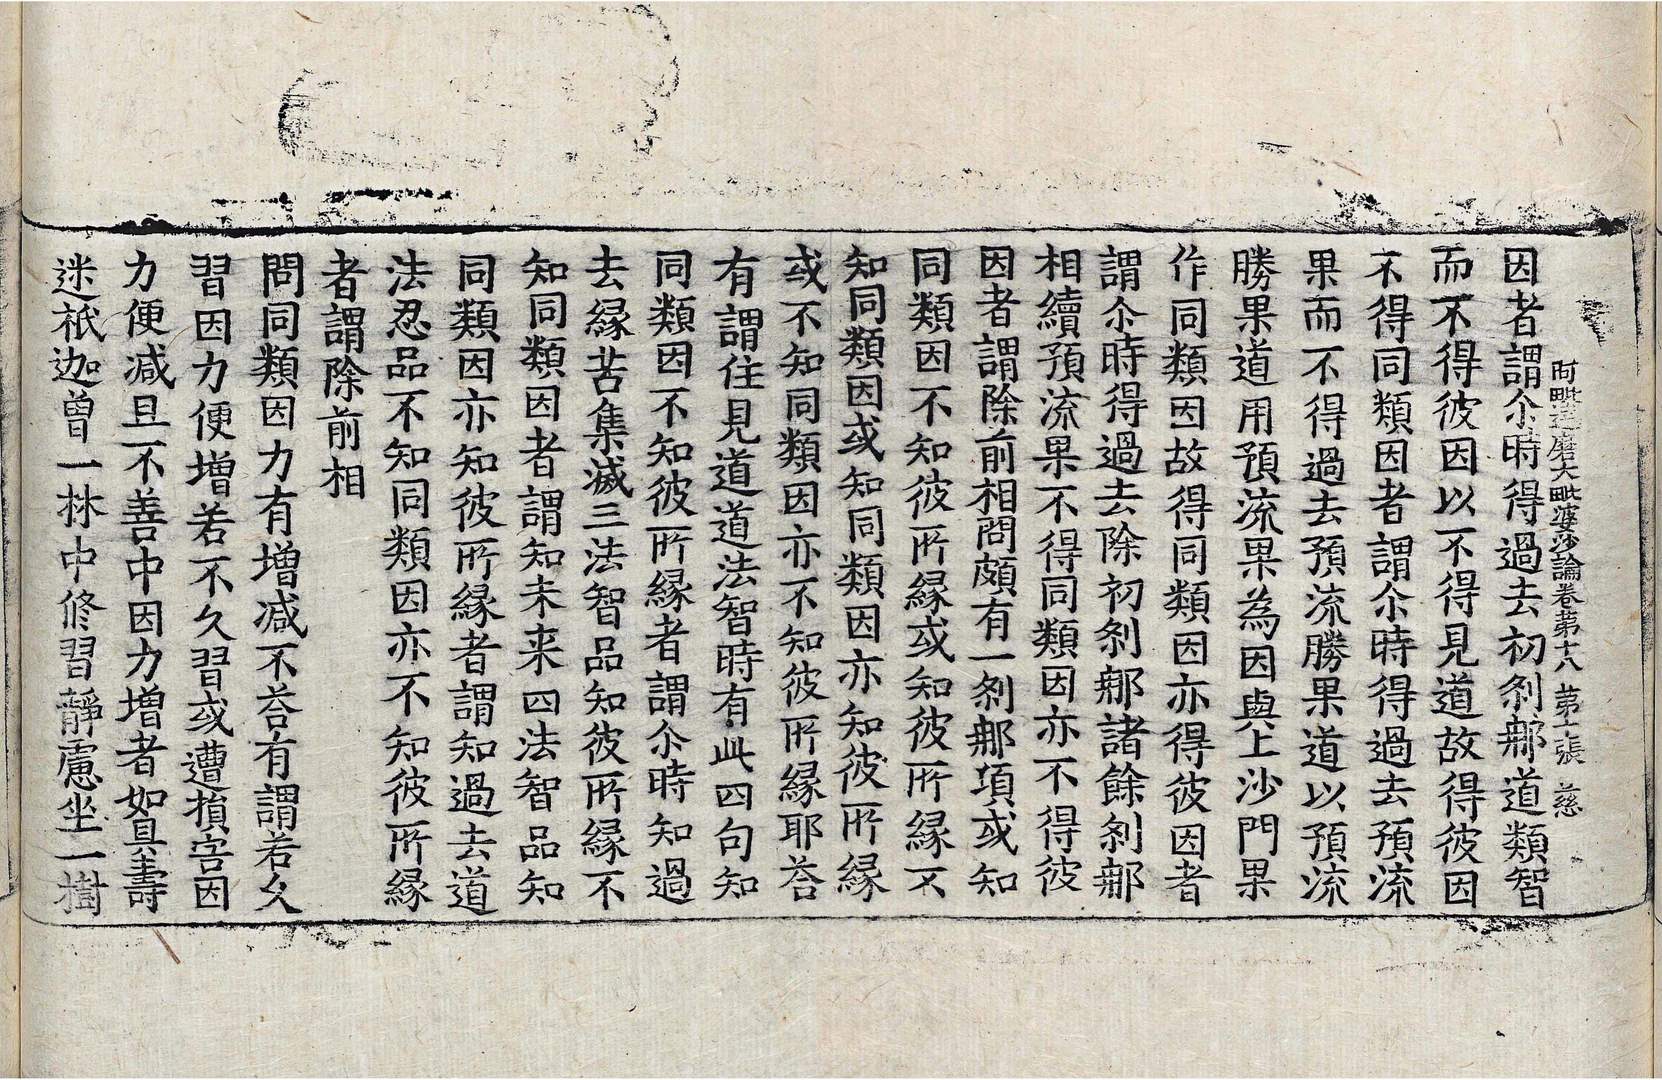 阿毗達磨大毗婆沙論卷第十八 第十張 慈
因者謂尒時得過去初刹那道類智
而不得彼因以不得見道故得彼因
不得同類因者謂尒時得過去預流
果而不得過去預流勝果道以預流
勝果道用預流果為因與上沙門果
作同類因故得同類因亦得彼因者
謂尒時得過去除初刹那諸餘刹那
相續預流果不得同類因亦不得彼
因者謂除前相問頗有一刹那項或知
同類因不知彼所緣或知彼所緣不
知同類因或知同類因亦知彼所緣
或不知同類因亦不知彼所緣耶荅
有謂住見道道法智時有此四句知
同類因不知彼所緣者謂尒時知過
去緣苦集滅三法智品知彼所緣不
知同類因者謂知未来四法智品知
同類因亦知彼所緣者謂知過去道
法忍品不知同類因亦不知彼所緣
者謂除前相
問同類因力有增減不荅有謂若久
習因力便增若不久習或遭損害因
力便减且不善中因力增者如真壽
迷祇迦曾一林中修習靜慮坐一樹